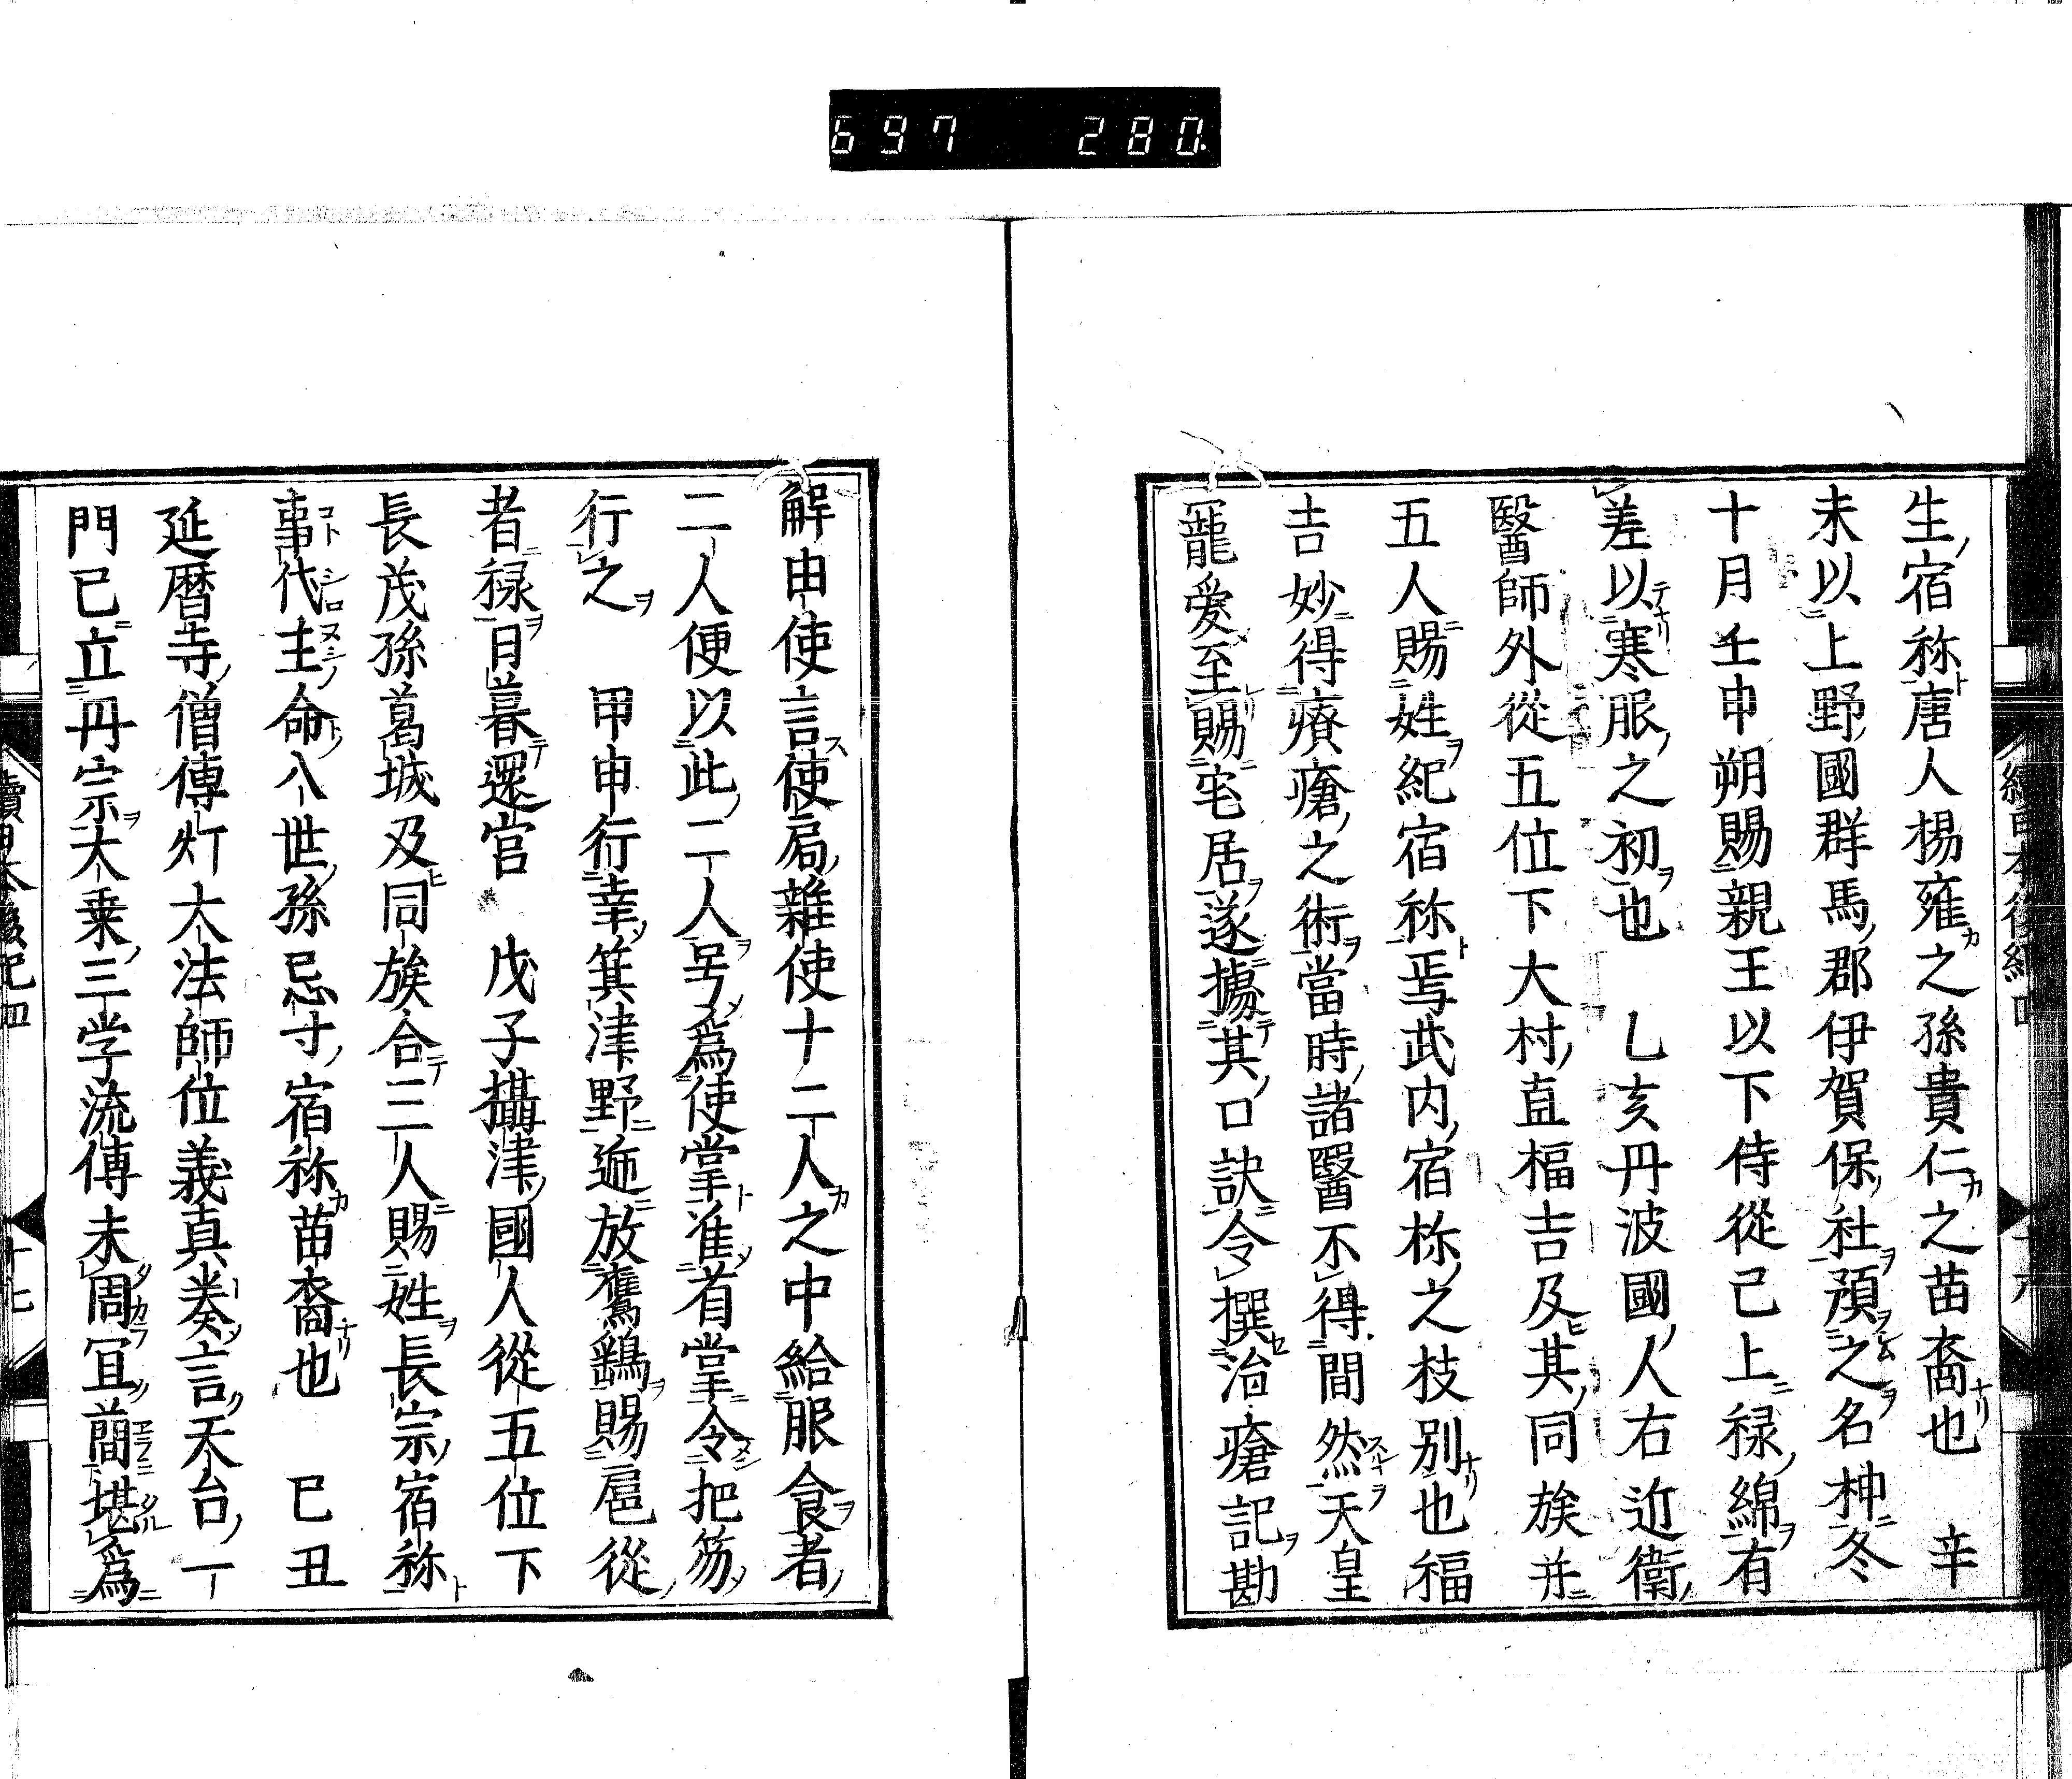 697 280
生宿祢唐人楊雍之孫貴仁之苗裔也 辛
未以上野國群馬郡伊賀保社預之名神冬
十月壬申朔賜親王以下侍從已上禄綿有
差以寒服之初也 乙亥丹波國人右近衛
醫師外從五位下大村直福吉及其同族并
五人賜姓紀宿祢焉武内宿祢之枝別也福
吉妙得療瘡之術當時諸醫不得間然天皇
寵愛至賜宅居遂據其口訣令撰治瘡記勘
解由使言使局雜使十二人之中給服食者
二人便以此二人号爲使掌准省掌令把笏
行之 甲申行幸箕津野遊放鷹鷂賜扈從
者禄日暮還宮 戊子攝津國人從五位下
長茂孫葛城及同族合三人賜姓長宗宿祢
事代主命八世孫忌寸宿祢苗裔也 己丑
延暦寺僧傳灯大法師位義真奏言天台一
門已立丹宗大乗三学流傳未周冝簡堪爲
續日本後紀四 十七